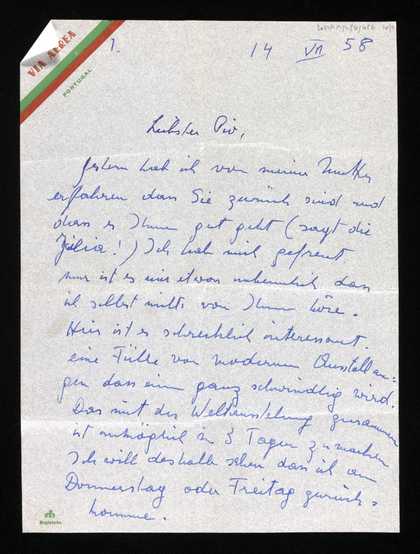 VIA AEREA
PORTUGAL
1.
14 VII 58
Liebster Pio,
gestern hab ich von meiner Mutter
erfahren dass Sie zurück sind und
dass es Ihnen gut geht (sagt die
Júlia!) Ich hab mich gefreut
nur ist es mir etwas unheimlich dass
ich selbst nichts von Ihnen höre.
Hier ist es schrecklich interessant.
eine Fülle von modernen Ausstellun-
gen dass einem ganz schwindlig wird.
Das mit der Weltausstellung zusammen
ist unmöglich in 3 Tagen zu machen
Ich will deshalb sehen dass ich am
Donnerstag oder Freitag zurück-
komme.